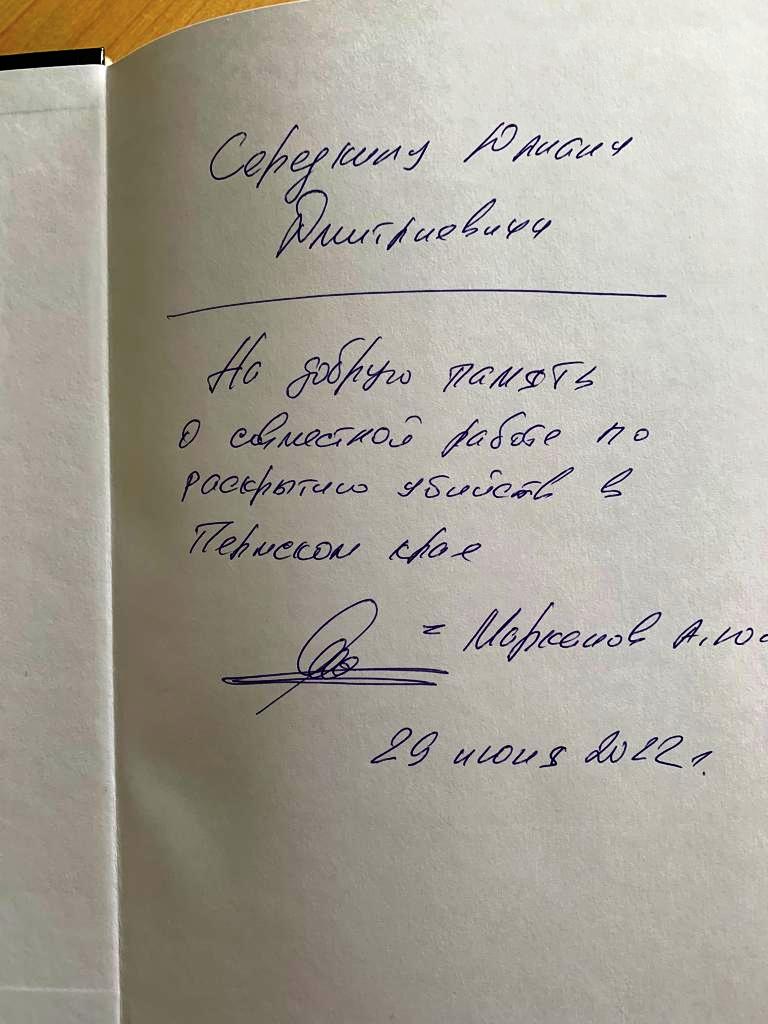 Середкину Юлиану
Дмитриевичу
На добрую память
о совместной работе по
раскрытию убийств в
Пермском крае
= Маркелов А.Ю.
29 июня 2022 г.